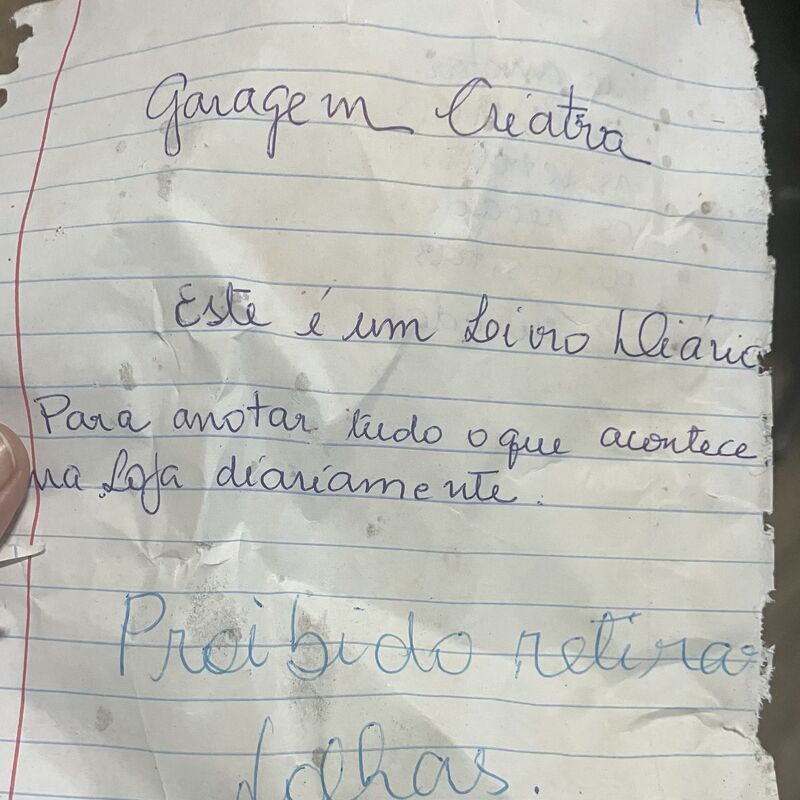 Garagem Criatva
Este é um Livro Diário
Para anotar tudo o que acontece
na Loja diariamente.
Proibido retirar
folhas.